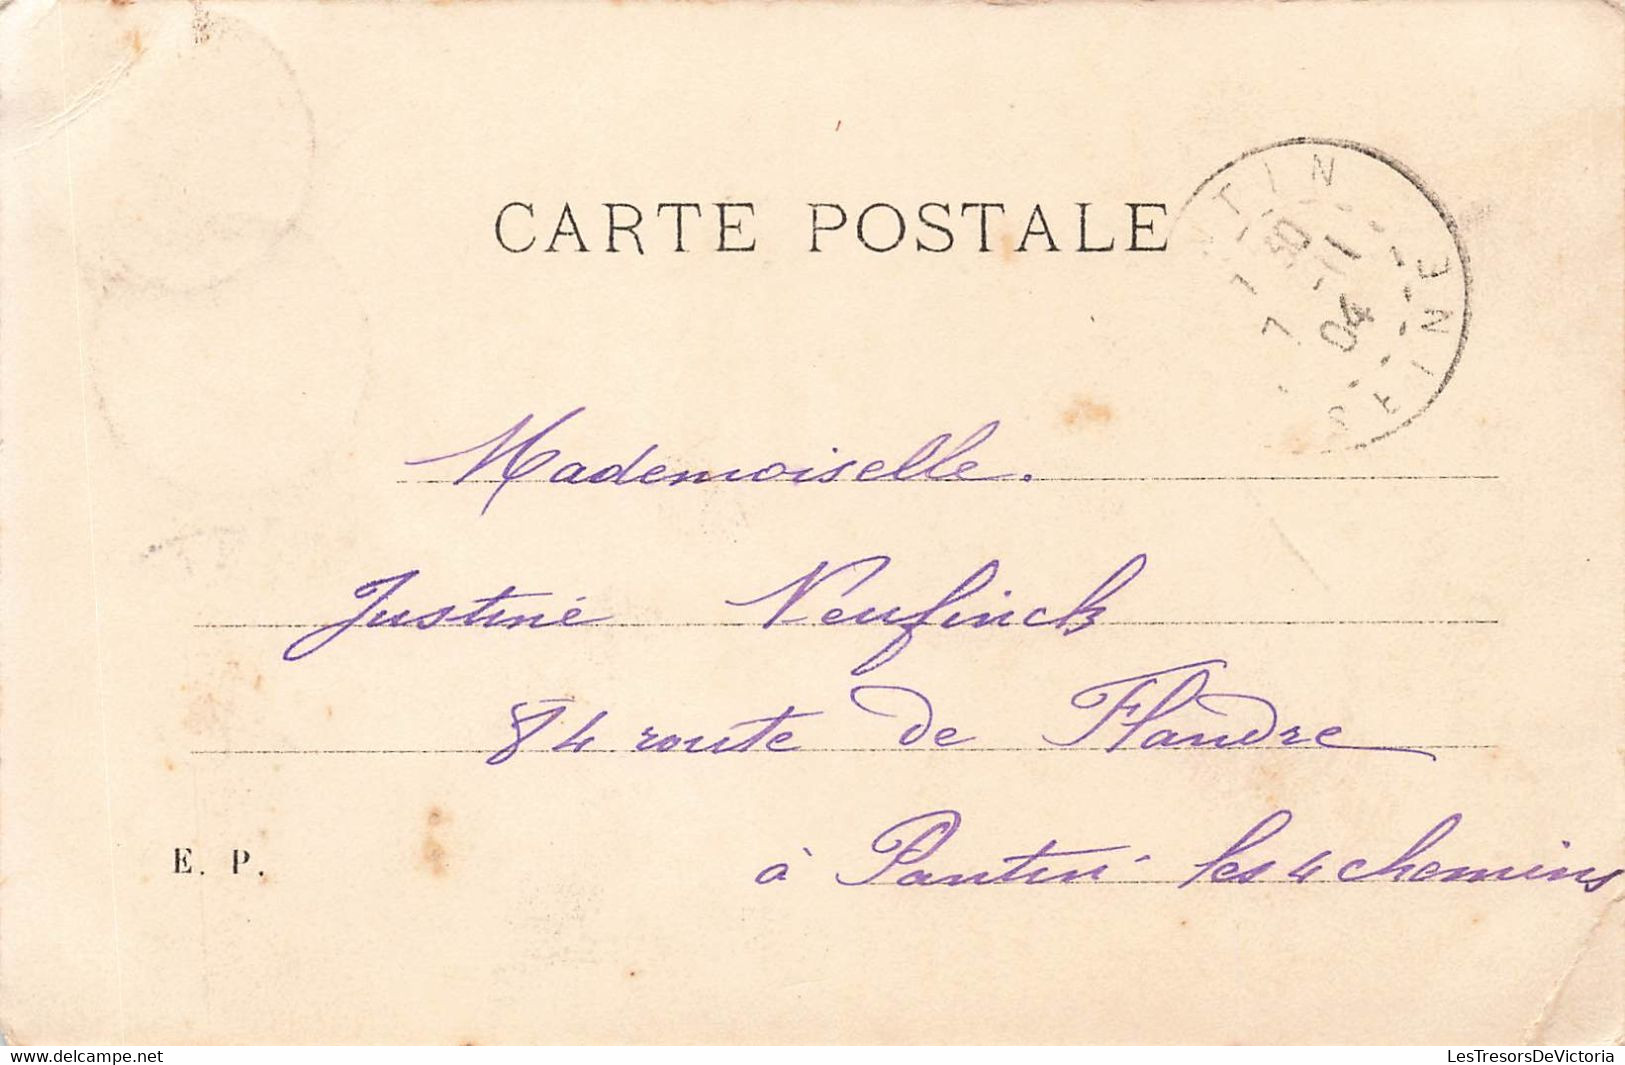 CARTE POSTALE
TIN
7 30
7 -11
04
SEINE
Mademoiselle.
Justine Neufinck
84 route de Flandre
E. P.
à Pantin les 4 chemins
www.delcampe.net
LesTresorsDeVictoria